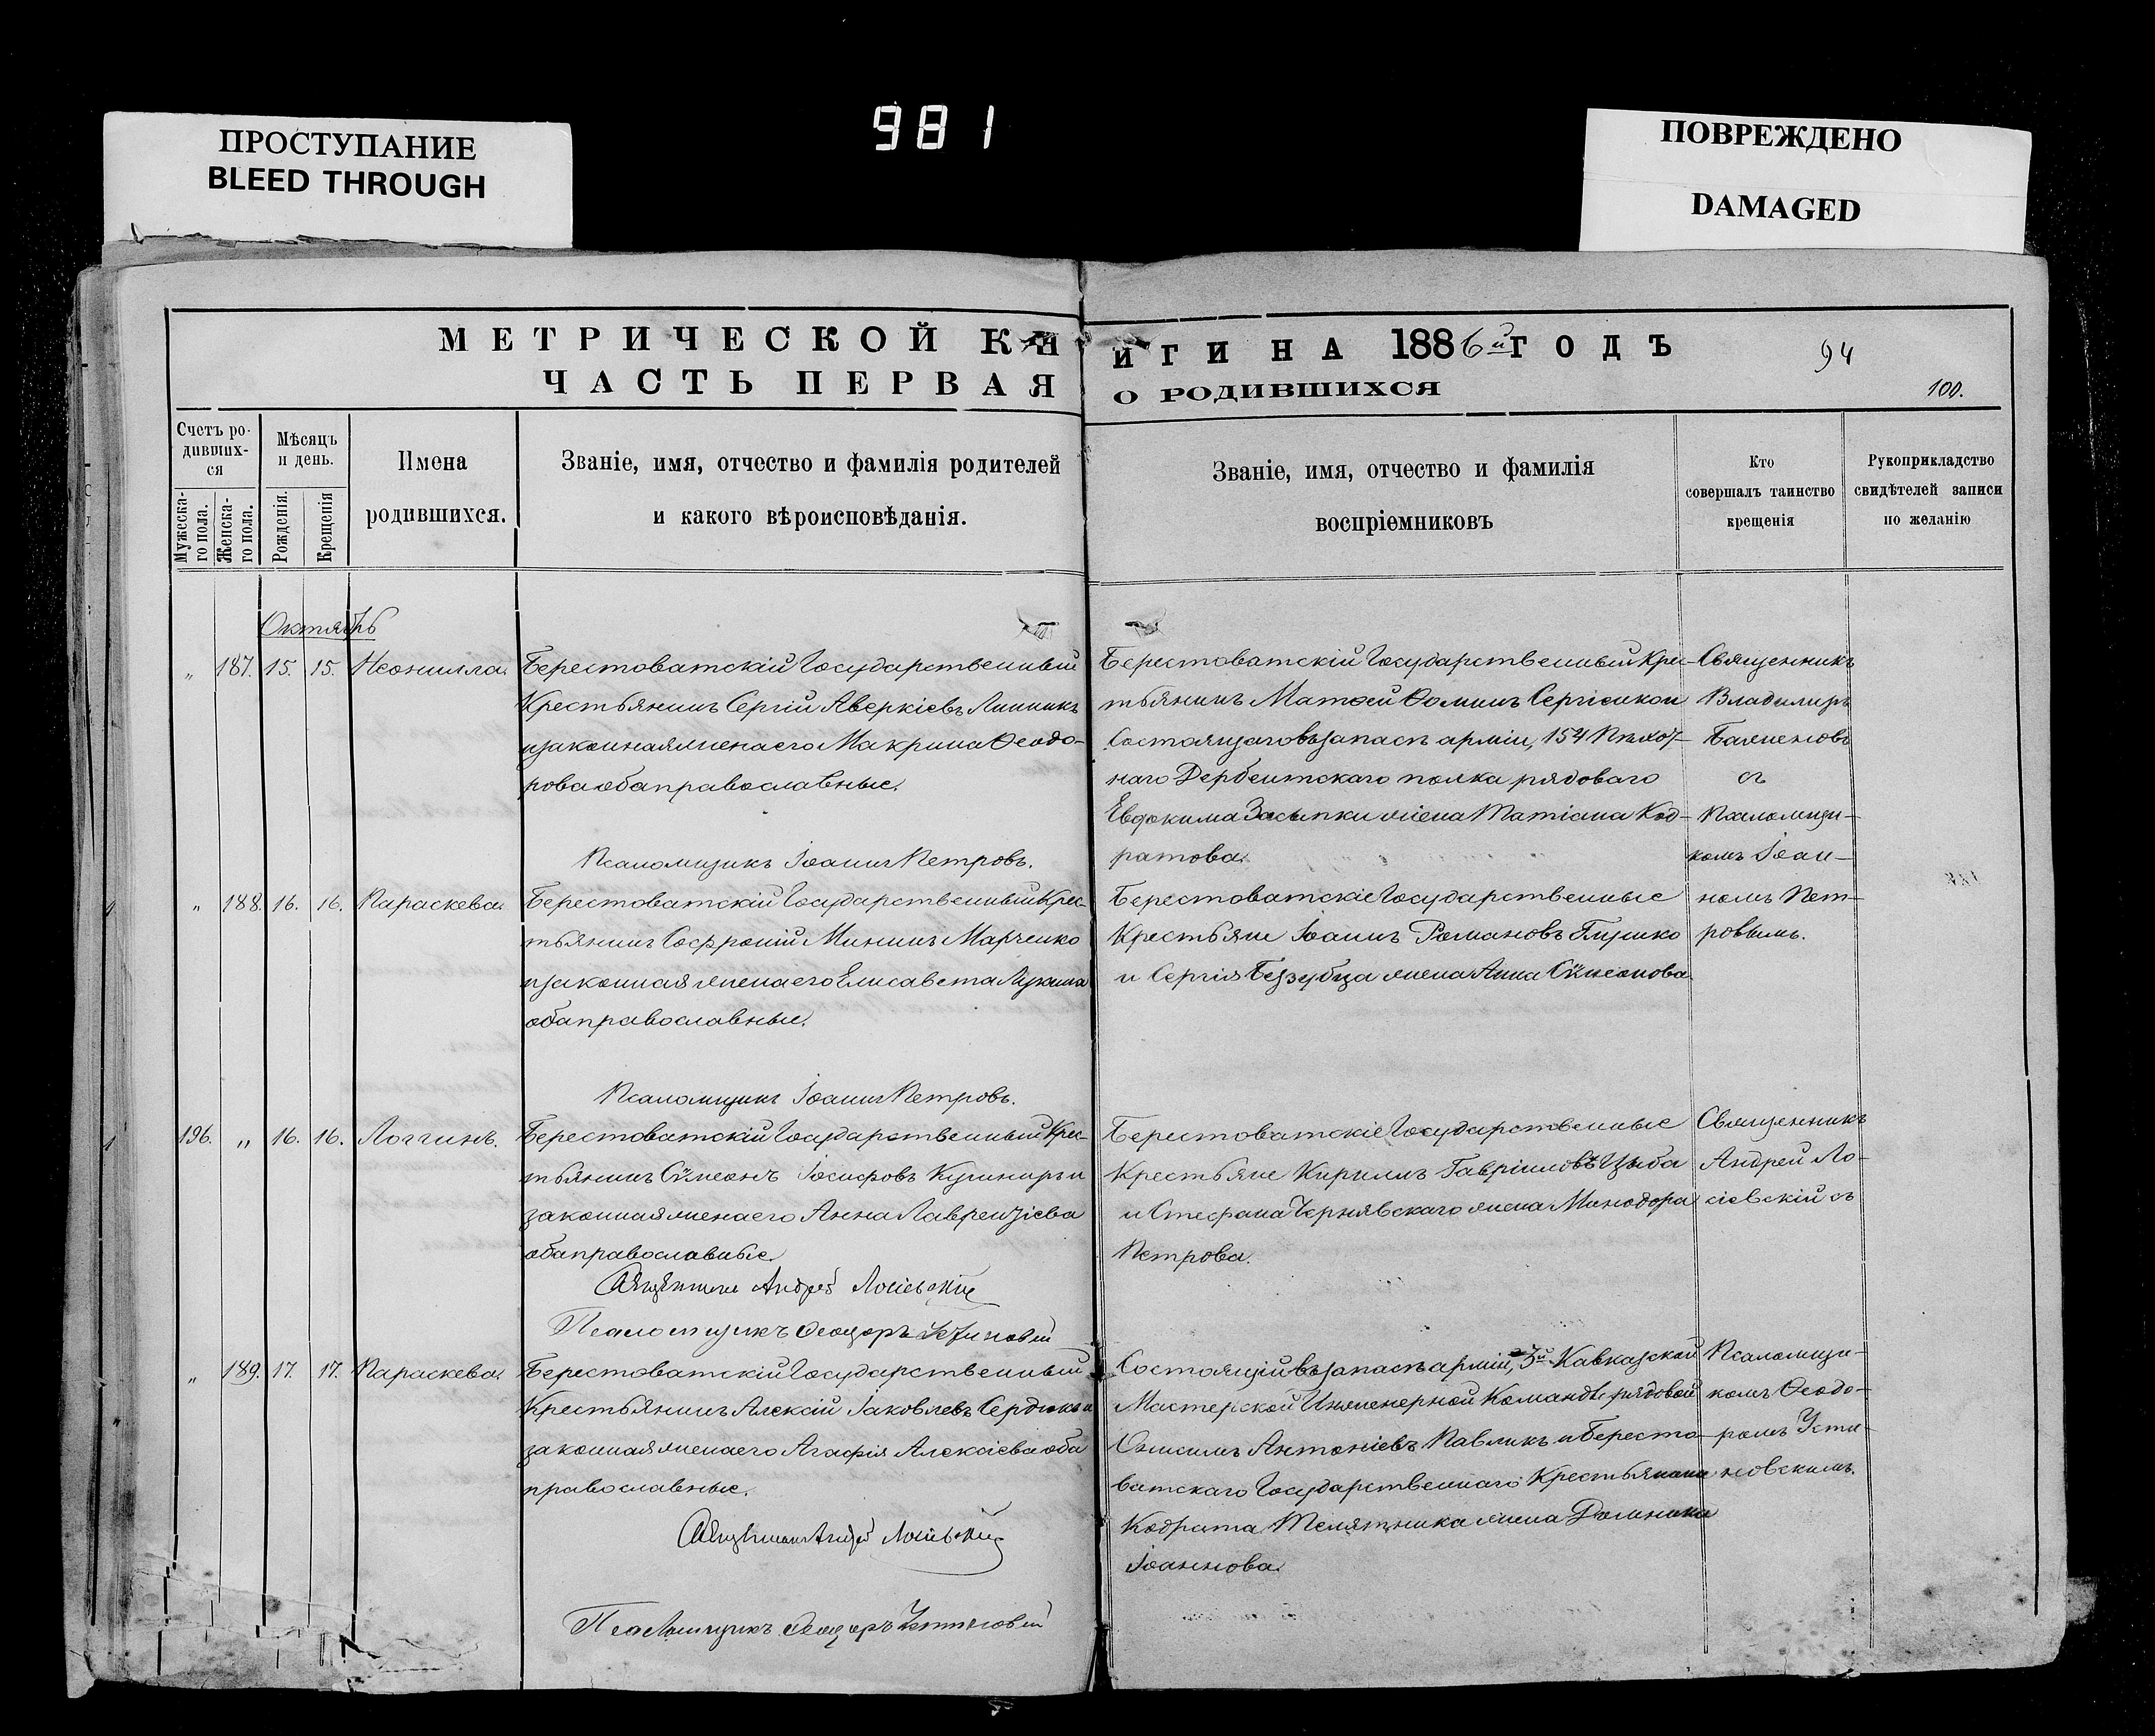 981
ПРОСТУПАНИЕ
BLEED THROUGH
ПОВРЕЖДЕНО
DAMAGED
МЕТРИЧЕСКОЙ КНИГИ НА 1886й ГОДЪ
94
ЧАСТЬ ПЕРВАЯ О РОДИВШИХСЯ
100.
Счетъ ро-
дивших-
ся
Мужеска-
го пола.
Женска-
го пола.
Мѣсяцъ
и день.
Рожденія.
Крещенія
Имена
родившихся.
Званіе, имя, отчество и фамилія родителей
и какого вѣроисповѣданія.
Званіе, имя, отчество и фамилія
воспріемниковъ
Кто
совершалъ таинство
крещенія
Рукоприкладство
свидѣтелей записи
по желанію
Октябрь
„ 187. 15. 15. Неонилла.
Берестоватскій Государственный
Крестьянинъ Сергій Аверкіевъ Линникъ
и законная жена его Макрина Ѳеодо-
рова оба православные.
Псаломщикъ Іоаннъ Петровъ.
Берестоватскій Государственный Крес-
тьянинъ Матѳей Ѳоминъ Сергіенко и
Состоящаго въ запасѣ арміи, 154 Пѣхот-
наго Дербентскаго полка рядоваго
Евдокима Засыпки жена Татіана Код-
ратова.
Священникъ
Владимиръ
Баженовъ
съ
Псаломщи-
комъ Іоан-
номъ Пет-
ровымъ.
„ 188. 16. 16. Параскева.
Берестоватскій Государственный Крес-
тьянинъ Софроній Мининъ Марченко
и законная жена его Елисавета Лукина
оба православные.
Псаломщикъ Іоаннъ Петровъ.
Берестоватскіе Государственные
Крестьяне Іоаннъ Романовъ Глушко
и Сергія Беззубца жена Анна Сѵмеонова.
196. „ 16. 16. Логгинъ.
Берестоватскій Государственный Крес-
тьянинъ Сѵмеонъ Іосифовъ Кушниръ и
законная жена его Анна Лаврентіева
оба православные.
Священникъ Андрей Лосіевскій
Псаломщикъ Ѳеодоръ Устиновскій
Берестоватскіе Государственные
Крестьяне Кириллъ Гавріиловъ Цыба
и Стефана Чернявскаго жена Минодора
Петрова.
Священникъ
Андрей Ло-
сіевскій съ
„ 189. 17. 17. Параскева.
Берестоватскій Государственный
Крестьянинъ Алексій Іаковлевъ Сердюкъ и
законная жена его Агафія Алексіева оба
православные.
Священникъ Андрей Лосіевскій
Псаломщикъ Ѳеодоръ Устиновскій
Состоящій въ запасѣ арміи, 3й Кавказской
Мастерской Инженерной Командѣ рядовой
Онисимъ Антоніевъ Павликъ и Бересто-
ватскаго Государственнаго Крестьянина
Кодрата Телятника жена Домникія
Іоаннова.
Псаломщи-
комъ Ѳеодо-
ромъ Усти-
новскимъ.